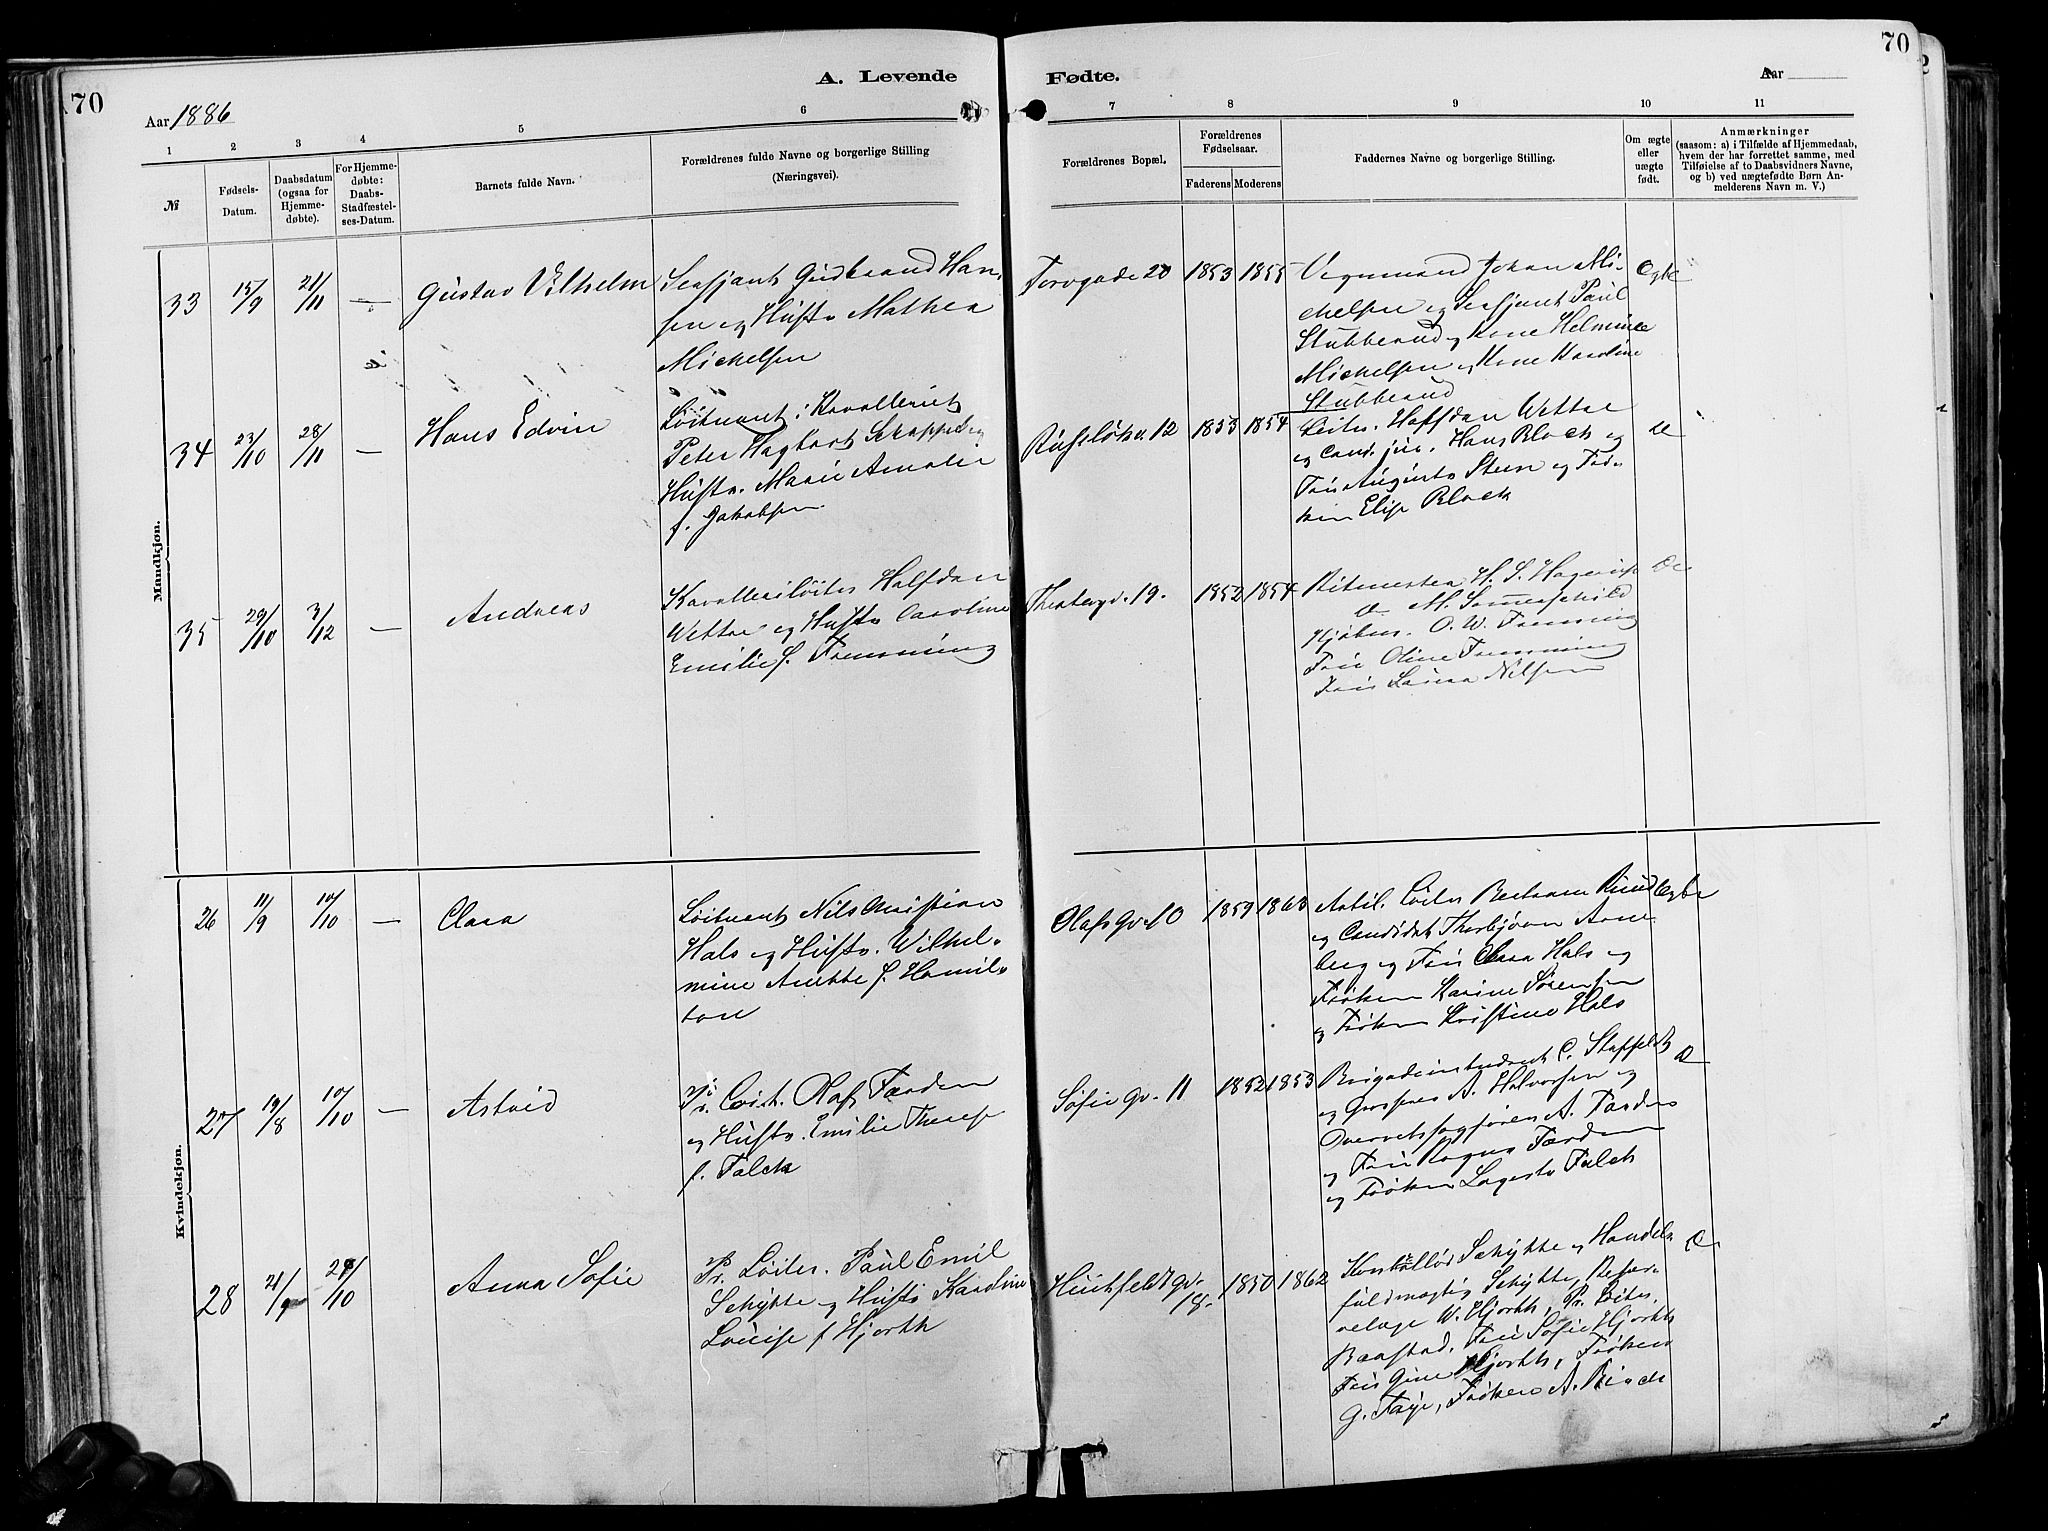 70
A. Levende
Fødte.
70
Aar 1886
Aar
1 2 3 4 5 6 7 8 9 10 11
№
Fødsels-
Datum.
Daabsdatum
(ogsaa for
Hjemme-
døbte).
For Hjemme-
døbte:
Daabs-
Stadfæstel-
ses-Datum.
Barnets fulde Navn.
Forældrenes fulde Navne og borgerlige Stilling
(Næringsvei).
Forældrenes Bopæl.
Forældrenes
Fødselsaar.
Faderens Moderens
Faddernes Navne og borgerlige Stilling.
Om ægte
eller
uægte
født.
Anmærkninger
(saasom: a) i Tilfælde af Hjemmedaab,
hvem der har forrettet samme, med
Tilføielse af to Daabsvidners Navne,
og b) ved uægtefødte Børn An-
melderens Navn m. V.)
Mandkjøn.
33 15/9 21/11 — Gustav Vilhelm
Sersjant Gudbrand Han-
sen og Hustr Mathea
Michelsen
Torvgade 20 1853 1855
Vognmand Johan Mi-
chelsen og Sersjant Paul
Stubberud og Kone Helmine
Michelsen og Kone Karoline
Stubberud
Egte
34 23/10 28/11 — Hans Edvin
Løitnant i Kavalleriet
Peter Hagbart
Hustr. Marie Amalie
f. Jakobsen
12 1853 1854
Løitn. Halfdan Wettre
og Cand. jur. Hans Block og
Fru Augusta Steen og Frø-
ken Elise Block
35 29/10 3/12 — Andreas
Kavalleriløitn Halfdan
Wettre og Hustr Caroline
Emilie f. Fremming
Theatergd. 19. 1852 1854
Ritmester H. S. Hagerup
M. Sommerschild
Kjøbm. O. W. Fremming
Fru Oline Fremming
Frøis Laura Nilsen
Kvindekjøn.
26 11/9 10/10 — Clara
Løitnant Nils Christian
Hals og Hustr. Wilhel-
mine Anette f. Hamil-
ton
Olafs gv. 10 1859 1863
Artil. Løitn Bertram Rund
og Candidat Thorbjørn Arne
berg og Fru Clara Hals og
Frøken Karine Sørensen
og Frøken Kristine Hals
Egte
27 19/8 10/10 — Astrid
Pr. Løit. Olaf Færden
og Hustr. Emilie Therese
f. Falck
Sofie gv. 11 1852 1853
Brigadeintendant C. Staffeldt
og Grosserer A. Halvorsen og
Overretssagfører A. Færden
og Fru Ragna Færden
og Frøken Falck
28 21/9 29/10 Anna Sofie
Pr. Løitn. Paul Emil
Schytte og Hustr Karoline
Louise f Hjorth
18. 1850 1862
Kontrollør Schytte og Handels
fuldmægtig Schytte, Reser-
velæge W. Hjorth, Pr. Løitn.
Baastad. Fru Sofie Hjorth
Fru Gine Hjorth, Frøken
G. Faye, Frøken A. Rinde